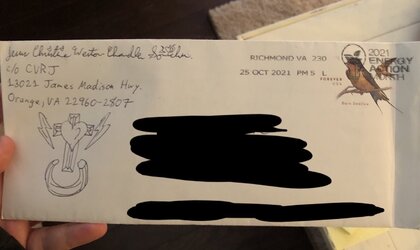 Jesus Christ Weston Chadle
c/o CVRJ
13021 James Madison Hwy.
Orange, VA 22960-2807
RICHMOND VA 230
25 OCT 2021 PM 5 L
2021
ENERGY
ACTION
FOREVER
USA
Barn Swallow